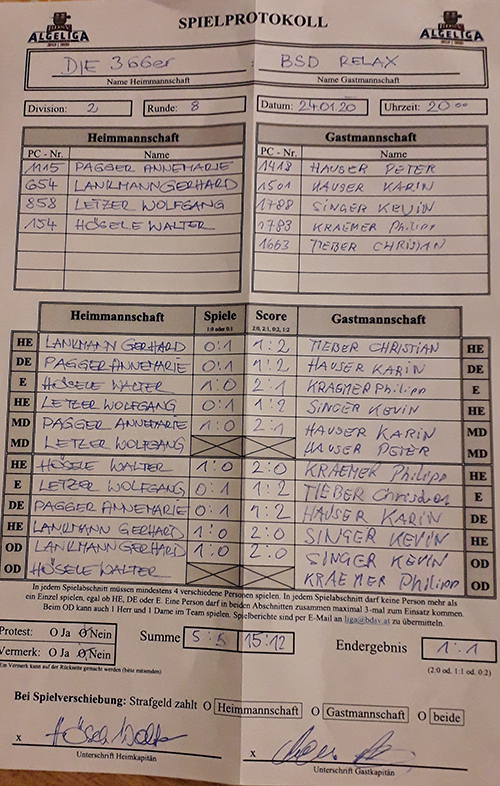 ALGELIGA SPIELPROTOKOLL ALGELIGA
2019 | 2020
DIE 366er BSD RELAX
Name Heimmannschaft Name Gastmannschaft
Division: 2 Runde: 8 Datum: 24.01.20 Uhrzeit: 20 00
Heimmannschaft Gastmannschaft
PC - Nr. Name PC - Nr. Name
1115 PAGGER ANNEMARIE 1418 HAUSER PETER
654 LANKMANN GERHARD 1501 HAUSER KARIN
858 LETZER WOLFGANG 1788 SINGER KEVIN
154 HÖSELE WALTER 1783 KRAEMER Philipp
1663 TIEBER CHRISTIAN
Heimmannschaft Spiele Score Gastmannschaft
1:0 oder 0:1 2:0, 2:1, 0:2, 1:2
HE LANKMANN GERHARD 0:1 1:2 TIEBER CHRISTIAN HE
DE PAGGER ANNEMARIE 0:1 1:2 HAUSER KARIN DE
E HÖSELE WALTER 1:0 2:1 KRAEMER Philipp E
HE LETZER WOLFGANG 0:1 1:2 SINGER KEVIN HE
MD PAGGER ANNEMARIE 1:0 2:1 HAUSER KARIN MD
MD LETZER WOLFGANG HAUSER PETER MD
HE HÖSELE WALTER 1:0 2:0 KRAEMER Philipp HE
E LETZER WOLFGANG 0:1 1:2 TIEBER Christian E
DE PAGGER ANNEMARIE 0:1 1:2 HAUSER KARIN DE
HE LANKMANN GERHARD 1:0 2:0 SINGER KEVIN HE
OD LANKMANN GERHARD 1:0 2:0 SINGER KEVIN OD
OD HÖSELE WALTER KRAEMER Philipp OD
In jedem Spielabschnitt müssen mindestens 4 verschiedene Personen spielen. In jedem Spielabschnitt darf keine Person mehr als
ein Einzel spielen, egal ob HE, DE oder E. Eine Person darf in beiden Abschnitten zusammen maximal 3-mal zum Einsatz kommen.
Beim OD kann auch 1 Herr und 1 Dame im Team spielen. Spielberichte sind per E-Mail an liga@bdsv.at zu übermitteln.
Protest: O Ja O Nein Summe 5:5 15:12 Endergebnis 1:1
Vermerk: O Ja O Nein
Ein Vermerk kann auf der Rückseite gemacht werden (bitte ankreuzen) (2:0 od. 1:1 od. 0:2)
Bei Spielverschiebung: Strafgeld zahlt O Heimmannschaft O Gastmannschaft O beide
x Hösele Walter x
Unterschrift Heimkapitän Unterschrift Gastkapitän